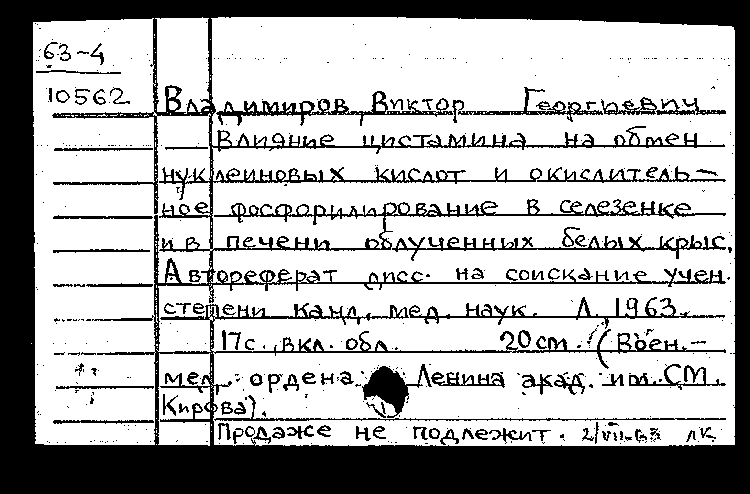 63-4
10562 Владимиров, Виктор Георгиевич
Влияние цистамина на обмен
нуклеиновых кислот и окислитель-
ное фосфорилирование в селезенке
и в печени облученных белых крыс.
Автореферат дисс. на соискание учен.
степени канд. мед. наук. Л., 1963.
17с., вкл. обл. 20 cm. (Воен.-
мед. ордена Ленина акад. им. С.М.
Кирова).
Продаже не подлежит. 2/VII-63 лк